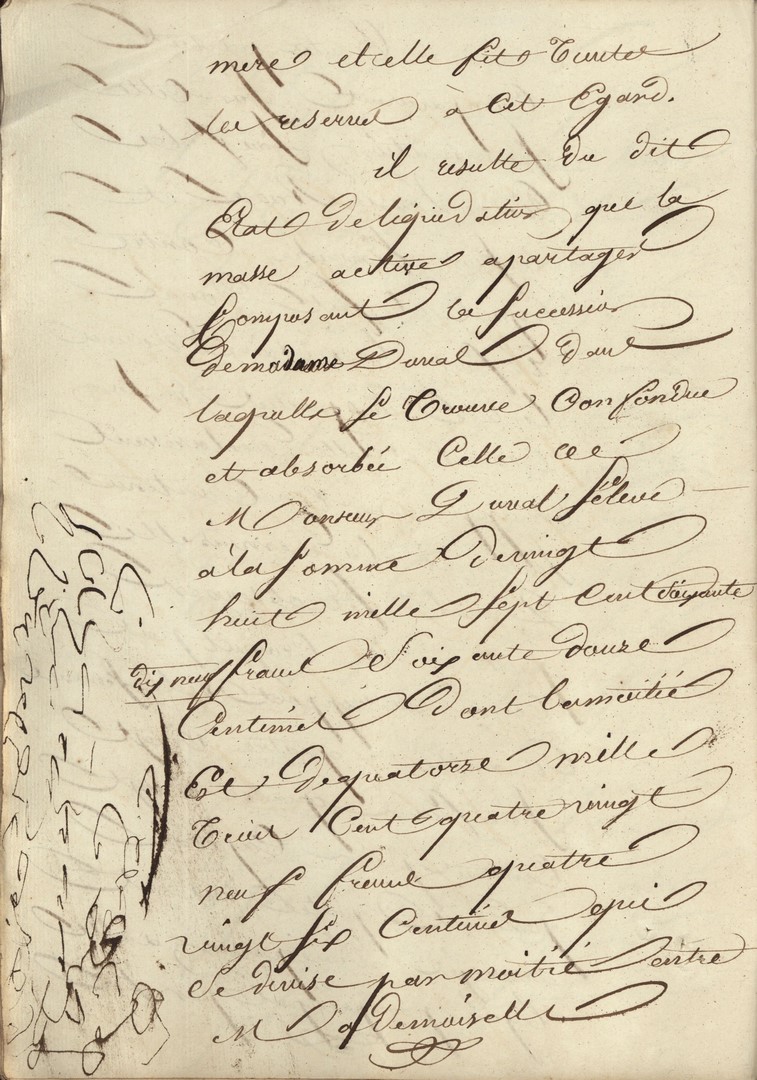 mere et elle fit toutes
les reserves à cet Egard.
il resulte du dit
Etat de liquidation que la
masse active a partager
Composant la succession
de madame Duval dans
laquelle se trouve Confondue
et absorbée Celle de
Monsieur Duval s'éleve
à la somme de vingt
huit mille sept cent soixante
dix neuf francs soixante douze
Centimes dont la moitié
Est de quatorze mille
trois Cent quatre vingt
neuf francs quatre
vingt six Centimes qui
se divise par moitié entre
Mademoiselle